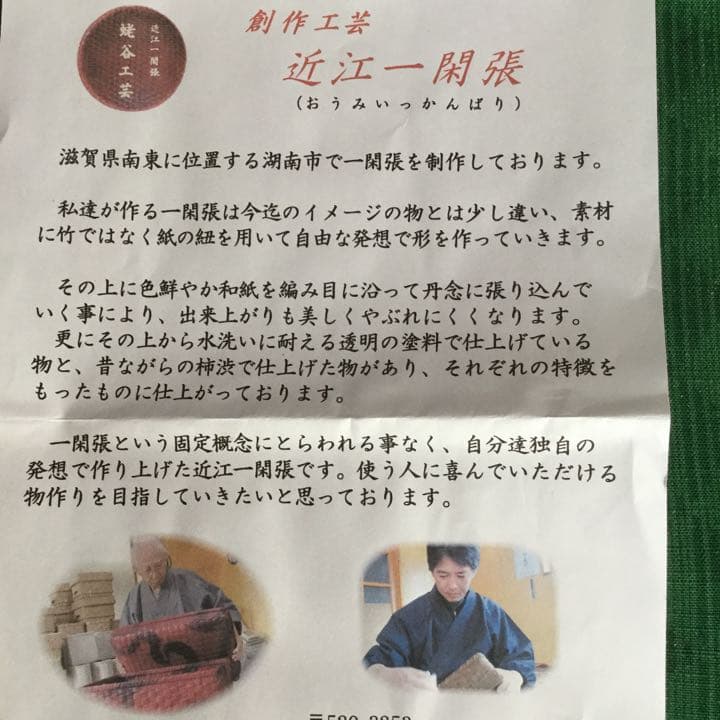 近江一閑張
蛯谷工芸
創作工芸
近江一閑張
(おうみいっかんばり)
滋賀県南東に位置する湖南市で一閑張を制作しております。
私達が作る一閑張は今迄のイメージの物とは少し違い、素材
に竹ではなく紙の紐を用いて自由な発想で形を作っていきます。
その上に色鮮やか和紙を編み目に沿って丹念に張り込んで
いく事により、出来上がりも美しくやぶれにくくなります。
更にその上から水洗いに耐える透明の塗料で仕上げている
物と、昔ながらの柿渋で仕上げた物があり、それぞれの特徴を
もったものに仕上がっております。
一閑張という固定概念にとらわれる事なく、自分達独自の
発想で作り上げた近江一閑張です。使う人に喜んでいただける
物作りを目指していきたいと思っております。